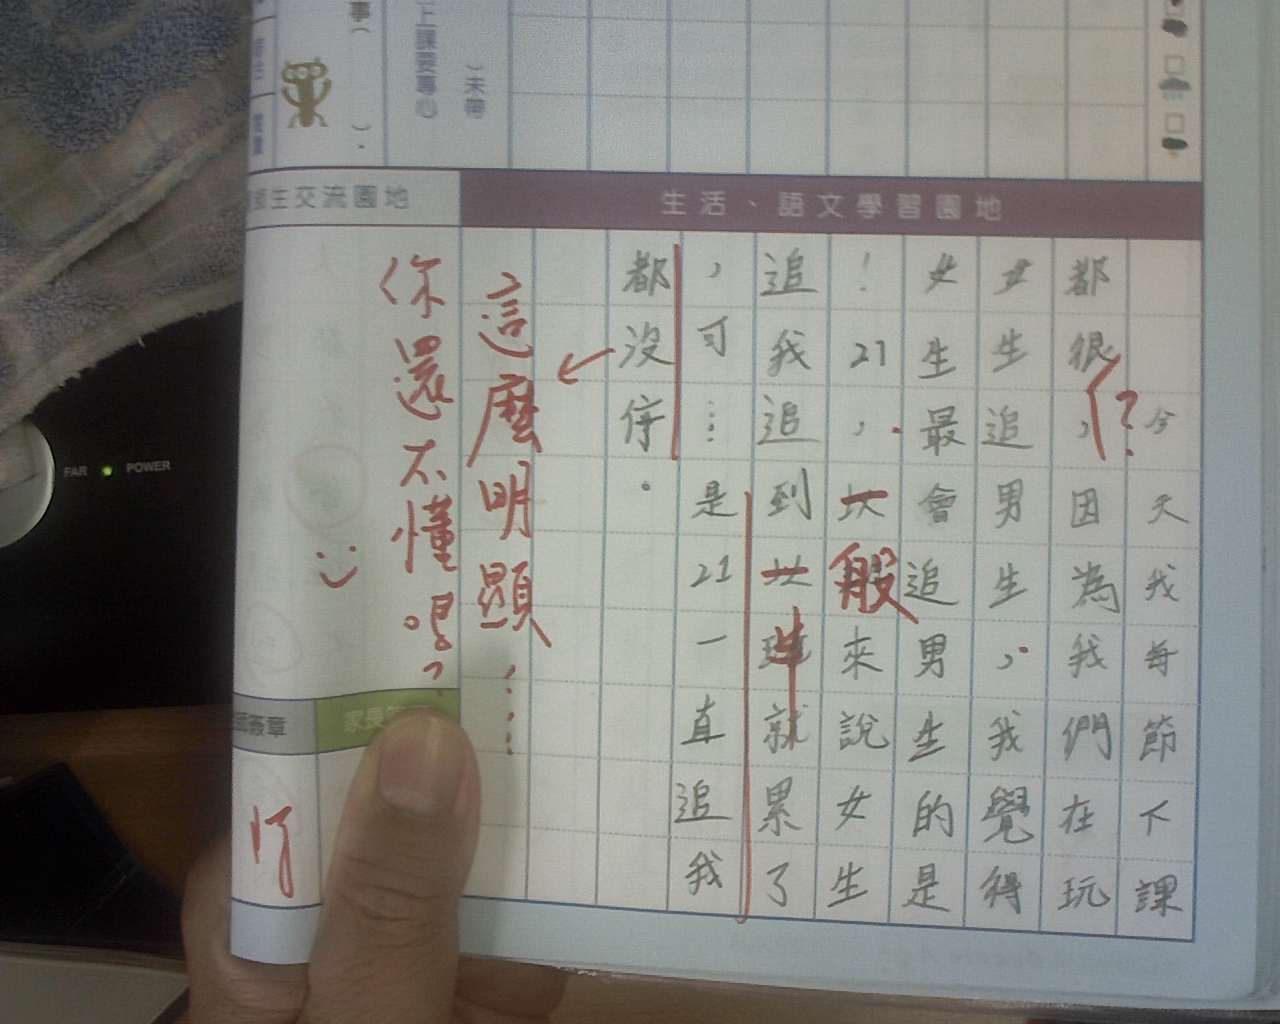 事(
).
上課要專心
)未帶
師生交流園地
生活、語文學習園地
今天我每節下課
都很,因為我們在玩
女生追男生,我覺得
女生最會追男生的是
!21,般來說女生
追我追到就累了
,可…是21一直追我
都沒停。
?
這麼明顯……
你還不懂嗎?
:)
師簽章
家長簽
FAR
POWER